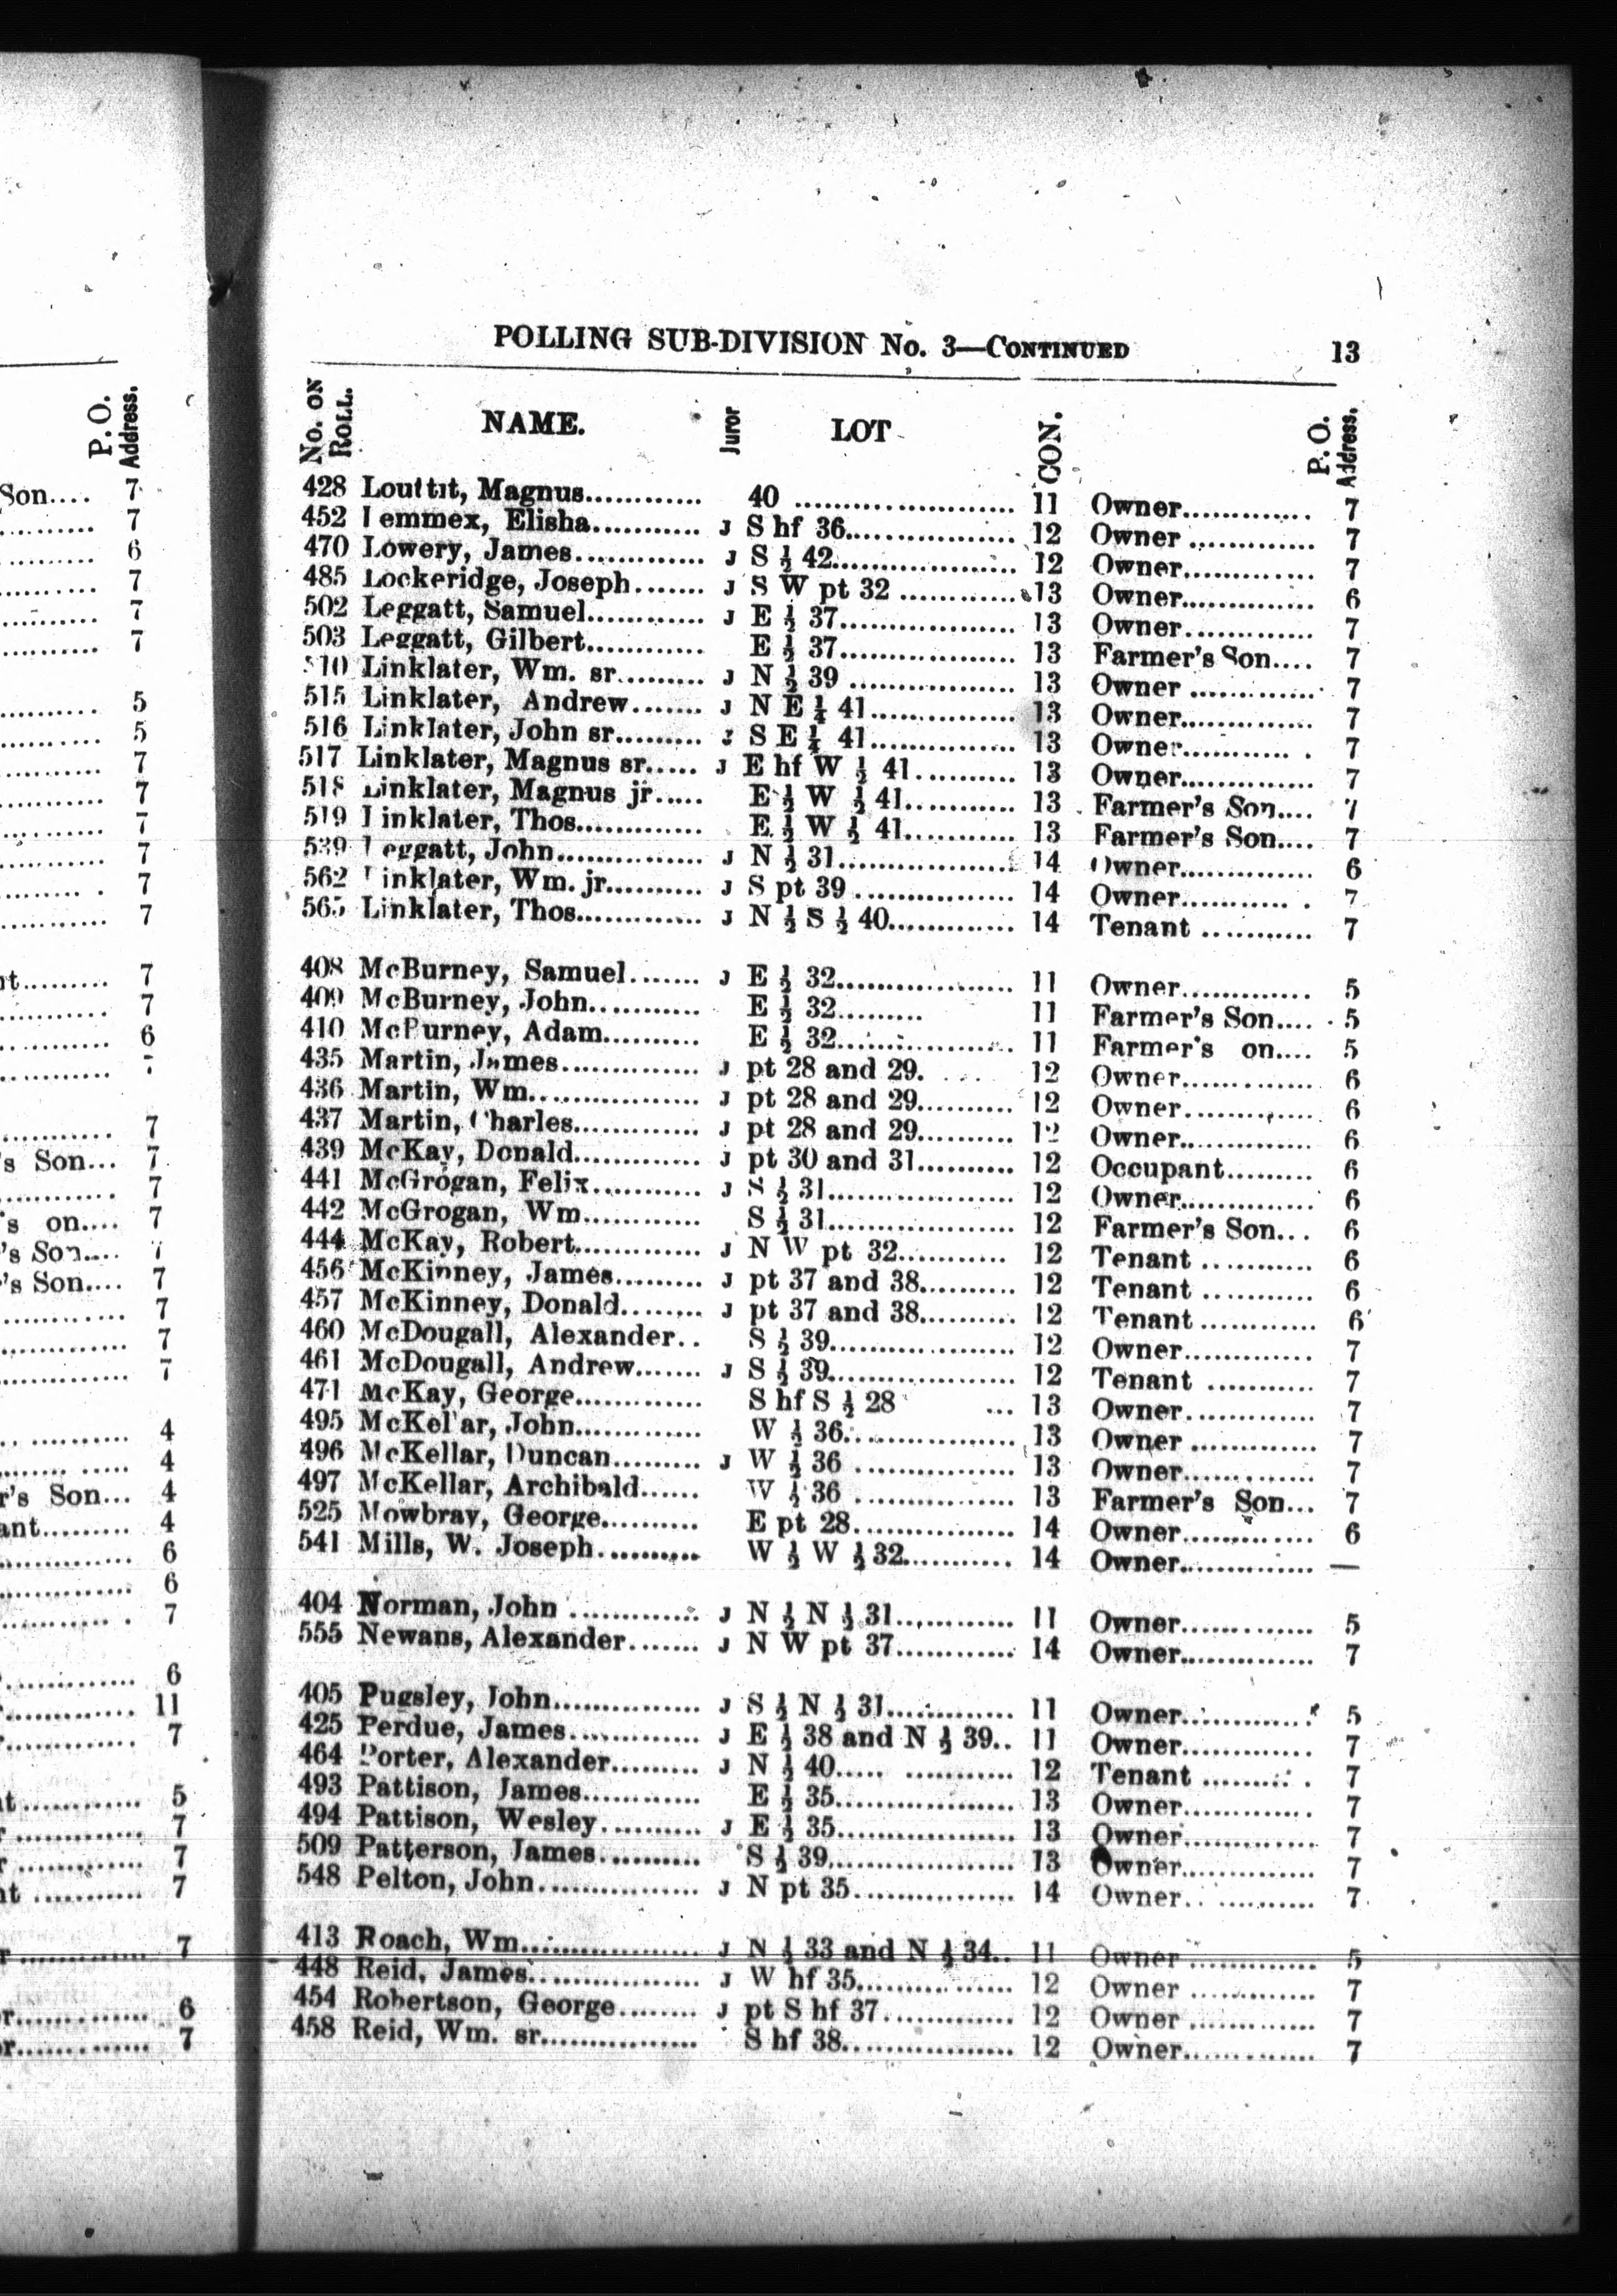 POLLING SUB-DIVISION No. 3—CONTINUED 13
No. on Roll. NAME. Juror LOT CON. P. O. Address.
428 Louttit, Magnus............ 40 ...................... 11 Owner............. 7
452 Lemmex, Elisha........... J S hf 36................. 12 Owner ............. 7
470 Lowery, James............. J S ½ 42................... 12 Owner............. 7
485 Lockeridge, Joseph....... J S W pt 32 ............ 13 Owner.............. 6
502 Leggatt, Samuel............ J E ½ 37.................. 13 Owner............. 7
503 Leggatt, Gilbert............ E ½ 37.................. 13 Farmer's Son.... 7
510 Linklater, Wm. sr......... J N ½ 39 ................. 13 Owner ............. 7
515 Linklater, Andrew....... J N E ¼ 41............... 13 Owner.............. 7
516 Linklater, John sr......... J S E ¼ 41............... 13 Owner............ . 7
517 Linklater, Magnus sr..... J E hf W ½ 41.......... 13 Owner.............. 7
518 Linklater, Magnus jr..... E ½ W ½ 41........... 13 Farmer's Son.... 7
519 Linklater, Thos............. E ½ W ½ 41........... 13 Farmer's Son.... 7
539 Leggatt, John............... J N ½ 31.................. 14 Owner.............. 6
562 Linklater, Wm. jr.......... J S pt 39 ................ 14 Owner........... . 7
565 Linklater, Thos............. J N ½ S ½ 40............. 14 Tenant ........... 7
408 McBurney, Samuel....... J E ½ 32.................. 11 Owner............. 5
409 McBurney, John........... E ½ 32......... 11 Farmer's Son.... 5
410 McBurney, Adam.......... E ½ 32.................. 11 Farmer's on.... 5
435 Martin, James.............. J pt 28 and 29. ... 12 Owner............. 6
436 Martin, Wm................. J pt 28 and 29.......... 12 Owner............. 6
437 Martin, Charles............. J pt 28 and 29.......... 12 Owner.............. 6
439 McKay, Donald............. J pt 30 and 31.......... 12 Occupant......... 6
441 McGrogan, Felix........... J S ½ 31................... 12 Owner.............. 6
442 McGrogan, Wm............ S ½ 31................... 12 Farmer's Son... 6
444 McKay, Robert............. J N W pt 32........... 12 Tenant ........... 6
456 McKinney, James......... J pt 37 and 38.......... 12 Tenant ........... 6
457 McKinney, Donald........ J pt 37 and 38.......... 12 Tenant ............ 6
460 McDougall, Alexander.. S ½ 39................... 12 Owner............. 7
461 McDougall, Andrew....... J S ½ 39................... 12 Tenant ........... 7
471 McKay, George............. S hf S ½ 28 ... 13 Owner............. 7
495 McKellar, John............. W ½ 36.................. 13 Owner ............. 7
496 McKellar, Duncan......... J W ½ 36 ................ 13 Owner............. 7
497 McKellar, Archibald...... W ½ 36 ................ 13 Farmer's Son... 7
525 Mowbray, George.......... E pt 28................ 14 Owner............. 6
541 Mills, W. Joseph........... W ½ W ½ 32........... 14 Owner.............. —
404 Norman, John ............. J N ½ N ½ 31............ 11 Owner............. 5
555 Newans, Alexander....... J N W pt 37............ 14 Owner.............. 7
405 Pugsley, John............... J S ½ N ½ 31............. 11 Owner............. 5
425 Perdue, James............. J E ½ 38 and N ½ 39.. 11 Owner............. 7
464 Porter, Alexander......... J N ½ 40..... ........... 12 Tenant ......... . 7
493 Pattison, James............ E ½ 35.................. 13 Owner............. 7
494 Pattison, Wesley.......... J E ½ 35.................. 13 Owner............. 7
509 Patterson, James.......... S ½ 39.................. 13 Owner............. 7
548 Pelton, John................ J N pt 35................ 14 Owner.. .......... 7
413 Roach, Wm.................. J N ½ 33 and N ½ 34.. 11 Owner ............ 5
448 Reid, James................. J W hf 35................ 12 Owner ............ 7
454 Robertson, George........ J pt S hf 37............. 12 Owner ............ 7
458 Reid, Wm. sr................ S hf 38................. 12 Owner............. 7